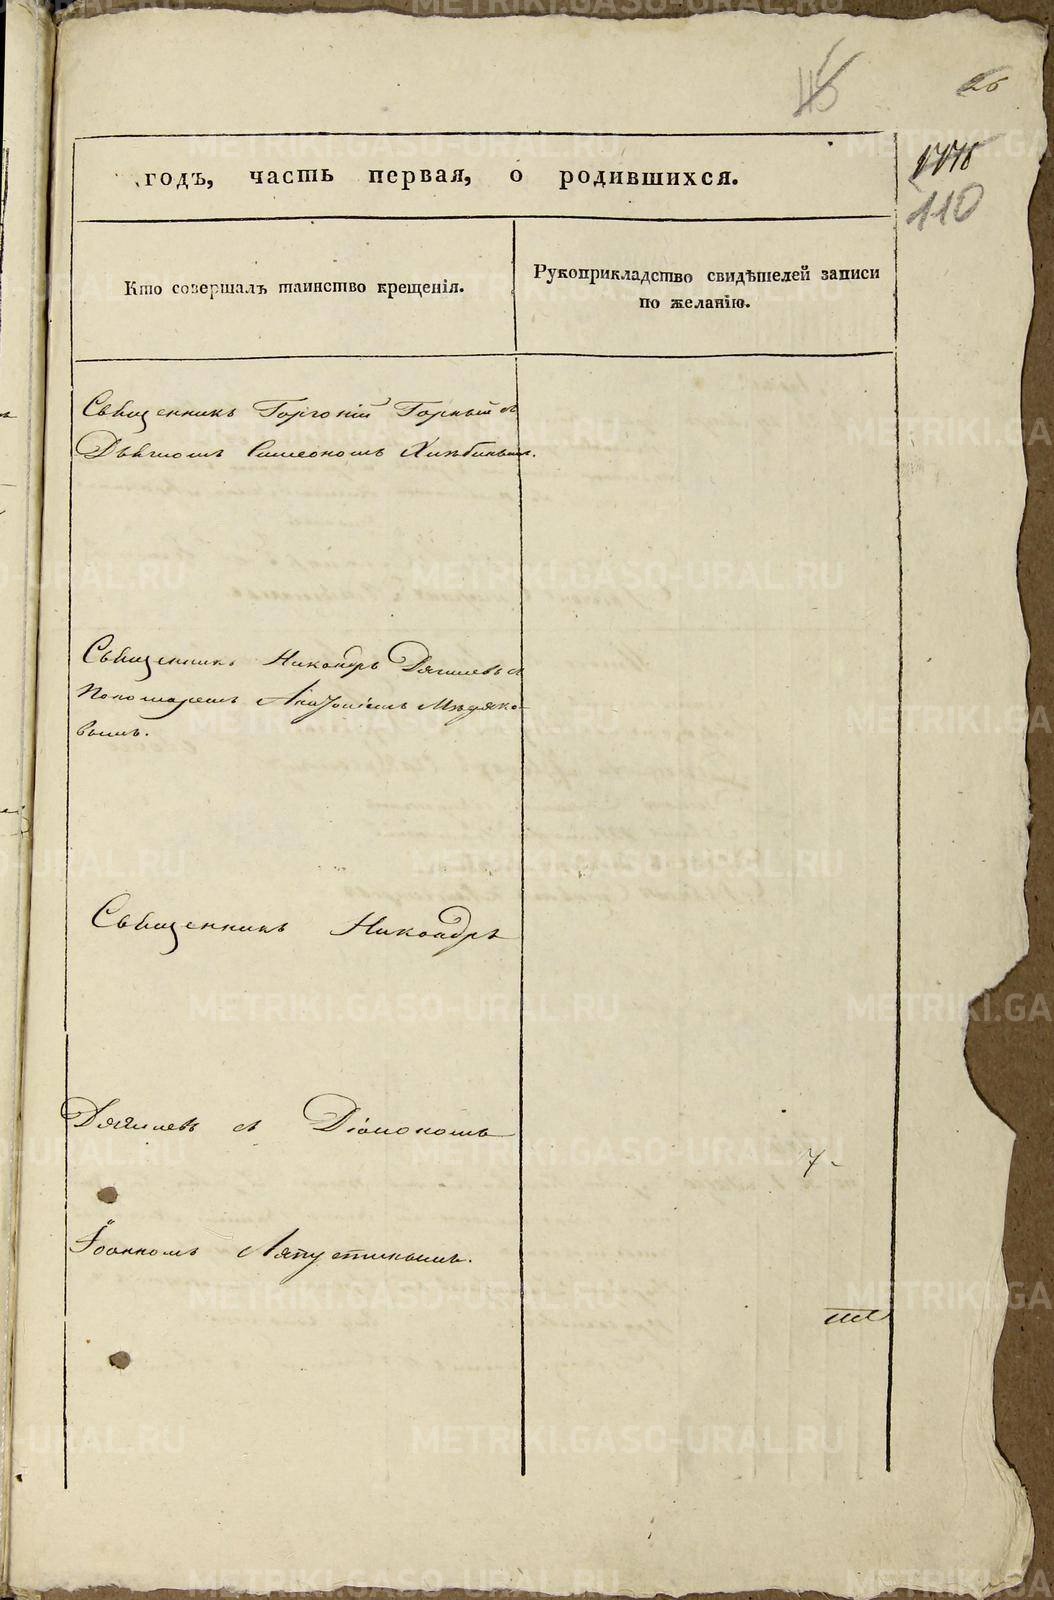 26
110
годъ, часть первая, о родившихся.
Кто совершалъ таинство крещенія.
Рукоприкладство свидѣтелей записи
по желанію.
Священникъ Горгоній Горный съ
Дьячкомъ Симеономъ Хлѣбинымъ.
Священникъ Никандръ Дягилевъ съ
Пономаремъ
вымъ.
Священникъ Никандръ
Дягилевъ съ Діакономъ
Іоанномъ Ляпустинымъ.
METRIKI.GASO-URAL.RU